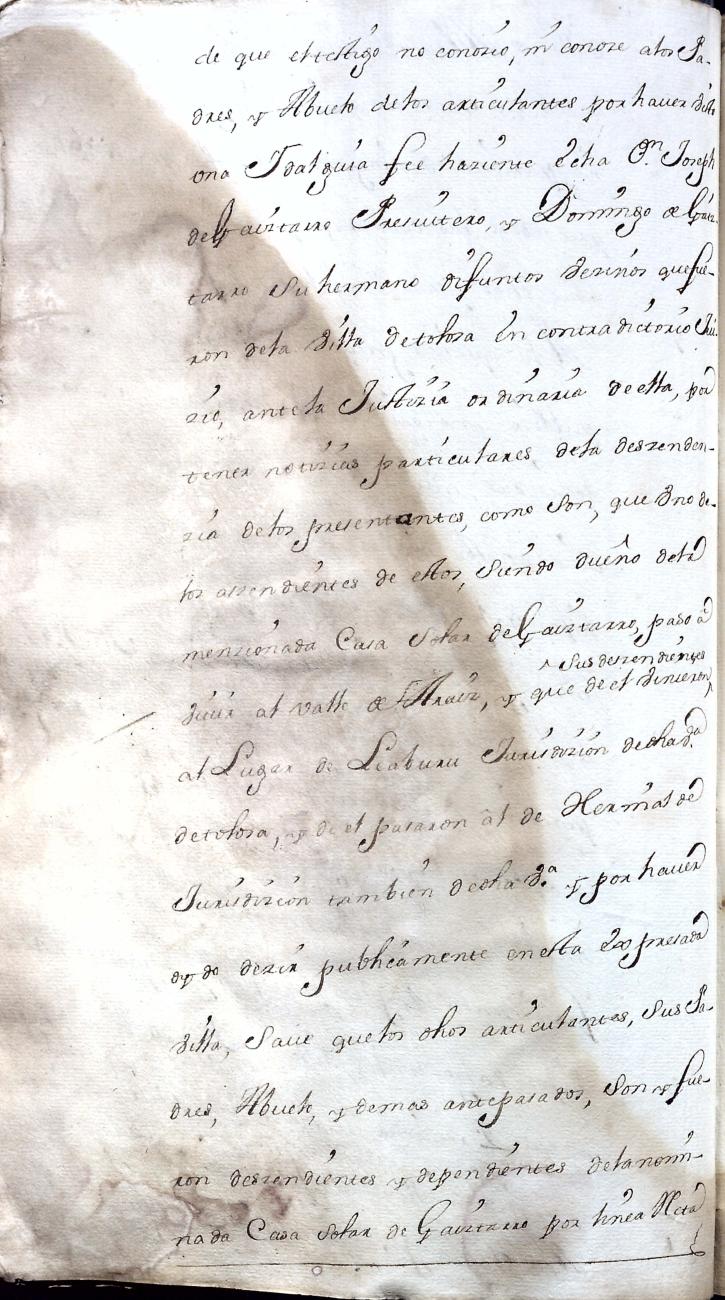 de que el testigo no conozio, ni conoze a los Pa-
dres, y Abuelo de los articulantes por haver
una Idalguia fee haziente Dn. Joseph
de Gaiztarro Presvitero, y Domingo de Gaiz-
tarro su hermano difuntos vezinos que fue-
ron dela Villa de tolosa en contradictorio Jui-
zio, ante la Justizia ordinaria de ella, por
tener notizias particulares dela deszenden-
zia delos presentantes, como son, que uno de
los aszendientes de ellos, siendo dueño dela
menzionada Casa Solar de Gaiztarro, paso â
^ Sus deszendientes
vivir al valle de Araiz, y que de el vinieron
al Lugar de Leaburu Jurisdizion de dha Va.
de tolosa, y de el pasaron âl de Hernialde
Jurisdizion tambien de dha Va. y por haver
oydo dezir publicamente en esta expresada
Villa, Save que los dhos articulantes, sus Pa-
dres, Abuelo, y demas antepasados, son y fue-
ron deszendientes y dependientes dela nomi-
nada Casa Solar de Gaiztarro por linea Recta